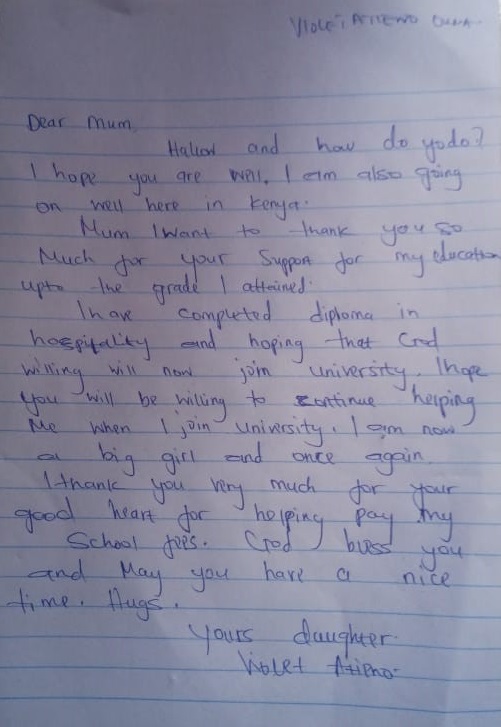 VIOLET ATIENO OUMA
Dear Mum,
Hallow and how do yodo?
I hope you are well, I am also going
on well here in Kenya.
Mum I want to thank you so
Much for your Support for my education
upto the grade I attained.
I have completed diploma in
hospitality and hoping that God
willing will now join university. I hope
you will be willing to continue helping
Me when I join university. I am now
a big girl and once again
I thank you very much for your
good heart for helping pay my
School fees. God bless you
and May you have a nice
time. Hugs.
Yours daughter.
Violet Atieno.